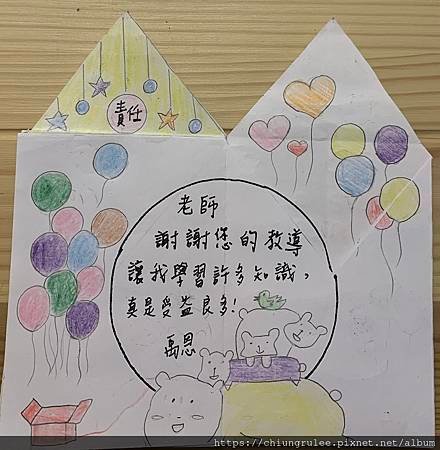 責任
老師
謝謝您的教導
讓我學習許多知識，
真是受益良多!
禹恩
https://chiungrulee.pixnet.net/album